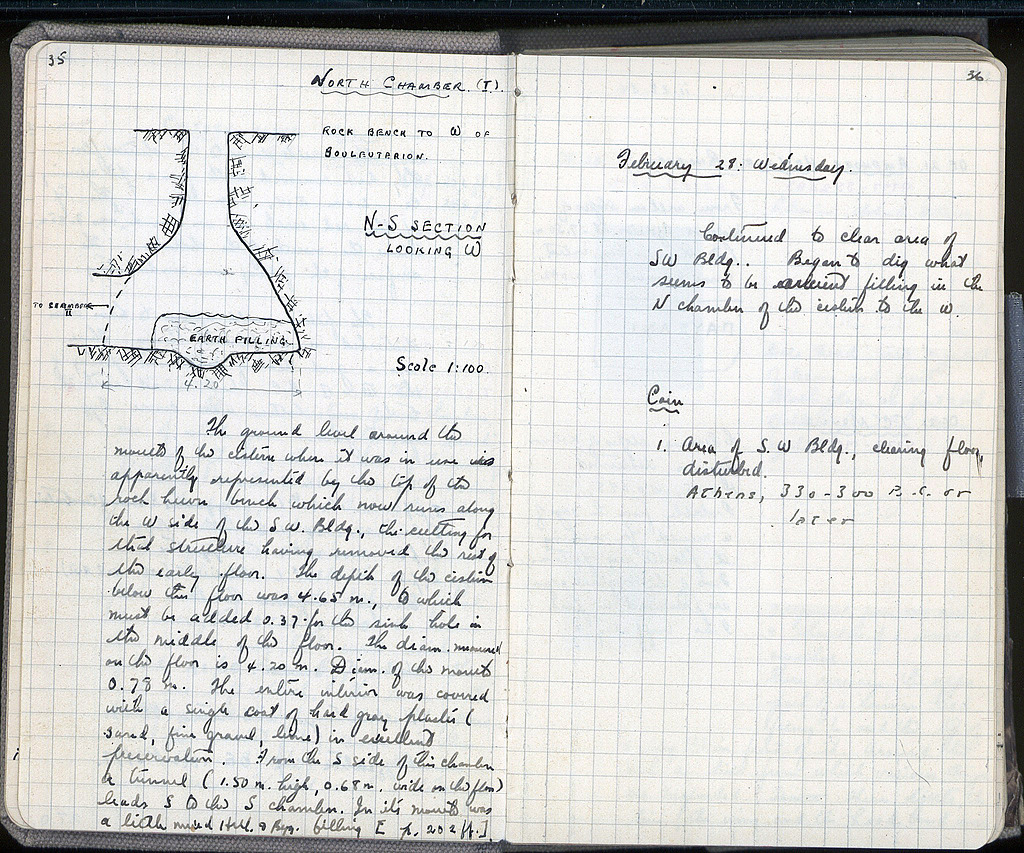 35
NORTH CHAMBER. (I).
ROCK BENCH TO W OF
BOULEUTERION.
N-S SECTION
LOOKING W
TO CHAMBER
II
EARTH FILLING
Scale 1:100.
4.20
The ground level around the
mouth of the cistern when it was in use was
apparently represented by the top of the
rock hewn bench which now runs along
the W side of the S.W. Bldg., the cutting for
that structure having removed the rest of
the early floor. The depth of the cistern
below this floor was 4.65 m., to which
must be added 0.37 for the sink hole in
the middle of the floor. The diam. measured
on the floor is 4.20 m. Diam. of the mouth
0.78 m. The entire interior was covered
with a single coat of hard gray plaster (
sand, fine gravel, lime) in excellent
preservation. From the S side of this chamber
a tunnel (1.50 m. high, 0.68 m. wide on the floor)
leads S to the S chamber. In its mouth was
a little mixed Hell. & Byz. filling [ p. 202 ff.]
36
February 28: Wednesday.
Continued to clear area of
SW Bldg.. Began to dig what
seems to be ancient filling in the
N chamber of the cistern to the W.
Coin
1. Area of S.W Bldg., clearing floor,
disturbed.
Athens, 330-300 B.C. or
later